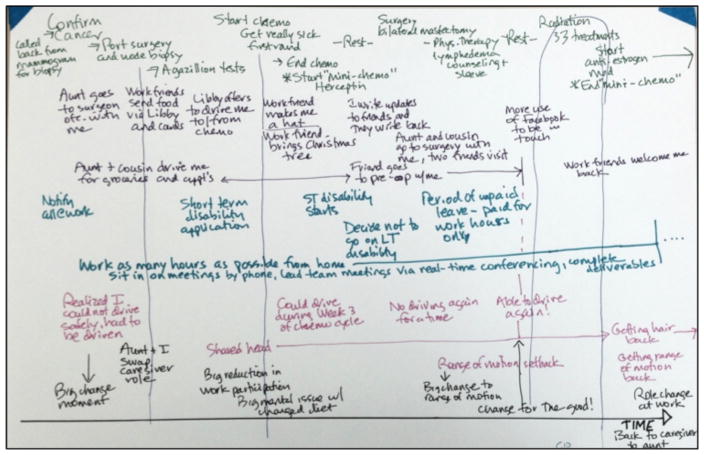 Confirm
Cancer
called back from mammogram for biopsy
→ Port surgery and node biopsy
→ A gazillion tests
Start chemo
Get really sick first round
→ End chemo
* Start "mini-chemo" Herceptin
-Rest-
Surgery
bilateral mastectomy
- Phys. Therapy
Lymphedema
counseling +
sleeve
-Rest-
Radiation
33 treatments
Start
anti-estrogen
med
* End "mini-chemo"
Aunt goes
to surgeon
ofc. with
me
Work friends
send food
via Libby
and cards
Libby offers
to drive me
to/from
chemo
Work friend
makes me
a hat
Work friend
brings Christmas
tree
I write updates
to friends and
they write back
Aunt and cousin
go to surgery with
me, two friends visit
More use
of Facebook
to be in
touch
Aunt + cousin drive me
for groceries and appt's
Friend goes
to pre-op w/me
Work friends welcome me
back
Notify
work
Short term
disability
application
ST disability
starts
Decide not to
go on LT
disability
Period of unpaid
leave - paid for
work hours
only
Work as many hours as possible from home
Sit in on meetings by phone, lead team meetings via real-time conferencing, complete
deliverables
....
Realized I
could not drive
safely, had to
be driven
Could drive
during Week 3
of chemo cycle
No driving again
for a time
Able to drive
again!
Big change
moment
Aunt + I
swap
caregiver
role
Shaved head
Getting hair
back
Big reduction in
work participation
Big mental issue w/
changed diet
Range of motion setback
Big change to
range of motion
Change for the good!
Getting
range of
motion
back
Role change
at work
TIME
Back to caregiver
to aunt